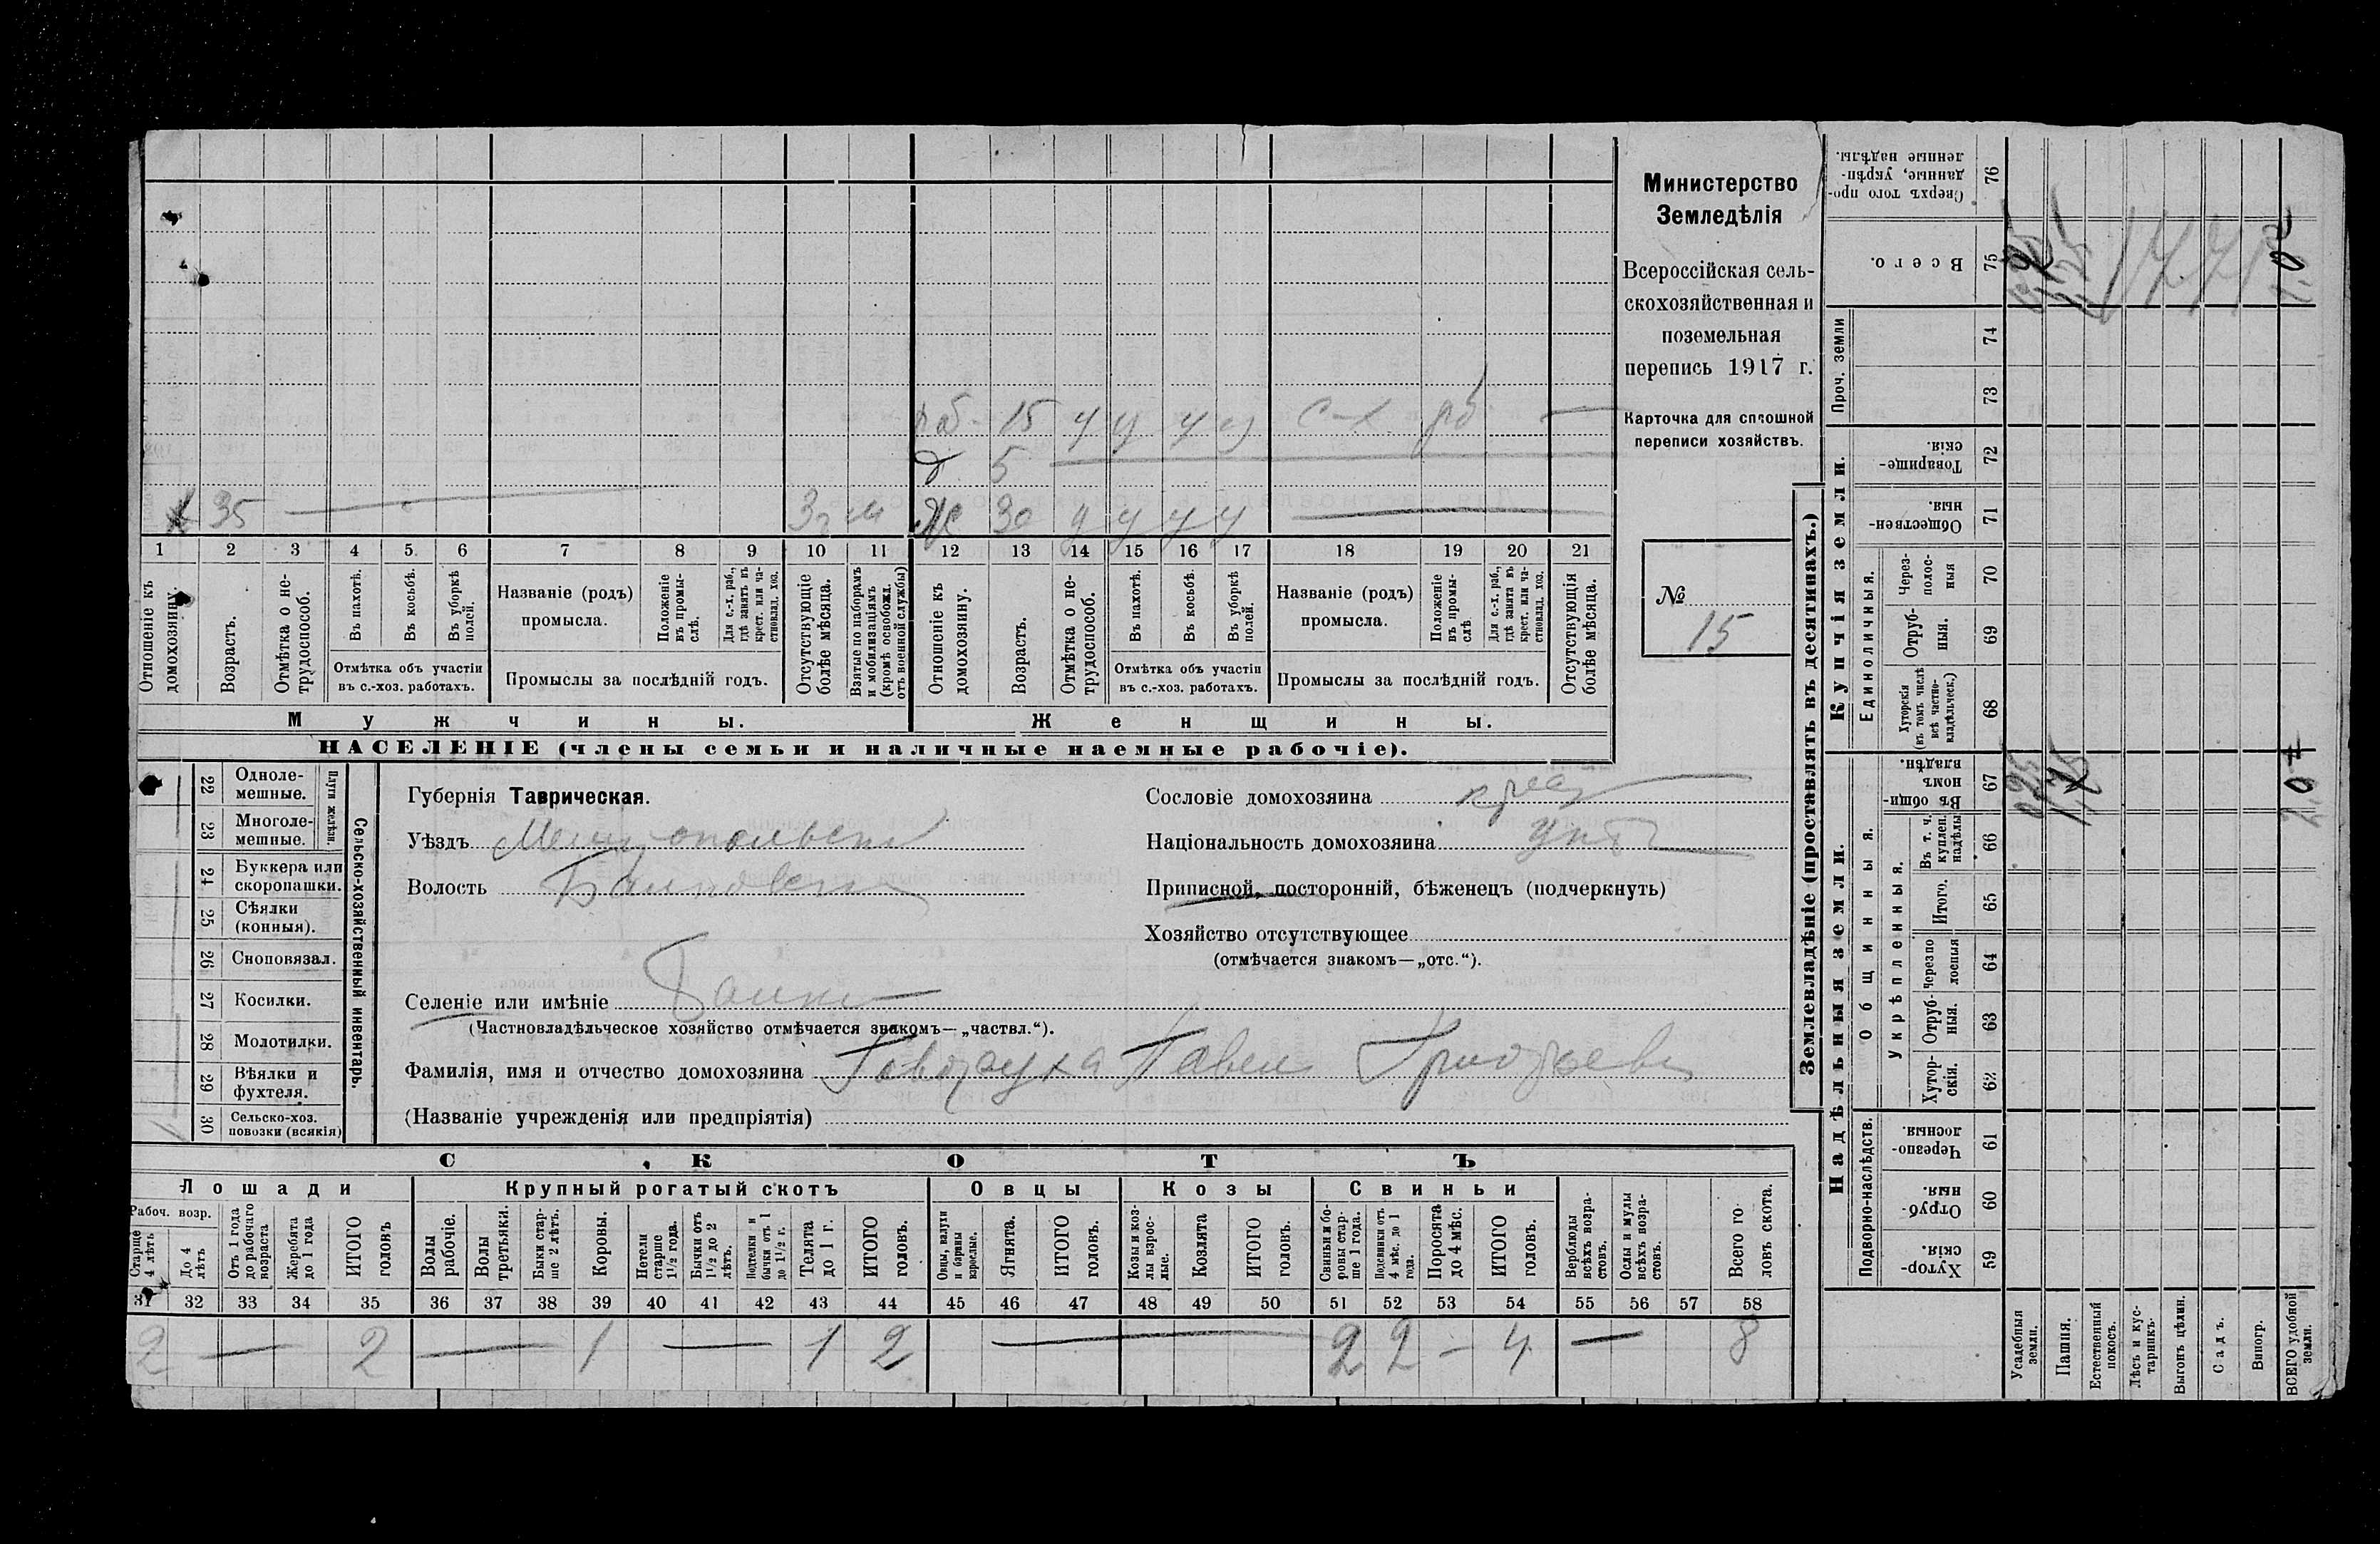 раб. 15 у у у у с-х рб —
д 5
х 35 — 3 г м ж 30 у у у у —
1 2 3 4 5. 6 7 8 9 10 11 12 13 14 15 16 17 18 19 20 21
Отношеніе къ домохозяину.
Возрастъ.
Отмѣтка о нетрудоспособ.
Въ пахотѣ.
Въ косьбѣ.
Въ уборкѣ полей.
Отмѣтка объ участіи
въ с.-хоз. работахъ.
Названіе (родъ)
промысла.
Положеніе въ промы-слѣ.
Для с.-х. раб., гдѣ занятъ въ крест. или ча-стновлад. хоз.
Промыслы за послѣдній годъ.
Отсутствующіе болѣе мѣсяца.
Взятые по наборамъ и мобилизаціямъ (кромѣ освобожд. отъ военной службы)
Отношеніе къ домохозяину.
Возрастъ.
Отмѣтка о не-трудоспособ.
Въ пахотѣ.
Въ косьбѣ.
Въ уборкѣ полей.
Отмѣтка объ участіи
въ с.-хоз. работахъ.
Названіе (родъ)
промысла.
Положеніе въ промы-слѣ
Для с.-х. раб., гдѣ занята въ крест. или ча-стновлад. хоз.
Промыслы за послѣдній годъ.
Отсутствующія болѣе мѣсяца.
Мужчины.
Женщины.
НАСЕЛЕНІЕ (члены семьи и наличные наемные рабочіе).
Министерство
Земледѣлія
Всероссійская сель-
скохозяйственная и
поземельная
перепись 1917 г.
Карточка для сплошной
переписи хозяйствъ.
№
15
22 Одноле-мешные.
23 Многоле-мешные.
Плуги желѣзн.
24 Буккера или скоропашки.
25 Сѣялки (конныя).
26 Сноповязал.
27 Косилки.
28 Молотилки.
29 Вѣялки и фухтеля.
30 Сельско-хоз. повозки (всякія)
Сельско-хозяйственный инвентарь.
Губернія Таврическая.
Уѣздъ Мелитопольскій
Волость
Селеніе или имѣніе
(Частновладѣльческое хозяйство отмѣчается знакомъ—„частвл.“).
Фамилія, имя и отчество домохозяина Говоруха Павел Григорьев
(Названіе учрежденія или предпріятія)
Сословіе домохозяина крест
Національность домохозяина
Приписной, посторонній, бѣженецъ (подчеркнуть)
Хозяйство отсутствующее
(отмѣчается знакомъ—„отс.“).
СКОТЪ
Лошади
Крупный рогатый скотъ
Овцы
Козы
Свиньи
Рабоч. возр.
Старше 4 лѣтъ
До 4 лѣтъ
Отъ 1 года до рабочаго возраста
Жеребята до 1 года
ИТОГО головъ
Волы рабочіе.
Волы третьяки.
Быки стар-ше 2 лѣтъ.
Коровы.
Нетели старше 1½ года.
Бычки отъ 1½ до 2 лѣтъ.
Подтелки и бычки отъ 1 до 1½ г.
Телята до 1 г.
ИТОГО головъ.
Овцы, валухи и бараны взрослые.
Ягнята.
ИТОГО головъ.
Козы и коз-лы взрос-лые.
Козлята
ИТОГО головъ.
Свиньи и бо-ровы стар-ше 1 года.
Подсвинки отъ 4 мѣс. до 1 года.
Поросята до 4 мѣс.
ИТОГО головъ.
Верблюды всѣхъ возра-стовъ.
Ослы и мулы всѣхъ возра-стовъ.
Всего го-ловъ скота.
31 32 33 34 35 36 37 38 39 40 41 42 43 44 45 46 47 48 49 50 51 52 53 54 55 56 57 58
2 — 2 — 1 — 1 2 — 2 2 — 4 — 8
Землевладѣніе (проставлять въ десятинахъ.)
Надѣльныя земли.
Купчія земли.
Проч. земли
Подворно-наслѣдств.
Общинныя.
Укрѣпленныя.
Единоличныя.
Хутор-скія. 59
Отруб-ныя. 60
Черезпо-лосныя. 61
Хутор-скія. 62
Отруб-ныя. 63
Черезпо лосныя 64
Итого. 65
Въ т. ч. куплен. надѣлы 66
Въ общи-номъ владѣн. 67
Хуторскія (въ томъ числѣ всѣ частно-владѣльческ.) 68
Отруб-ныя. 69
Через-полос-ныя 70
Обществен-ныя 71
Товарище-скія 72
73
74
Всего. 75
Сверхъ того про-данные, укрѣп-ленные надѣлы. 76
Усадебныя земли.
Пашня.
Естественный покосъ.
Лѣсъ и кус-тарникъ.
Выгонъ цѣлин.
Садъ.
Виногр.
ВСЕГО удобной земли.